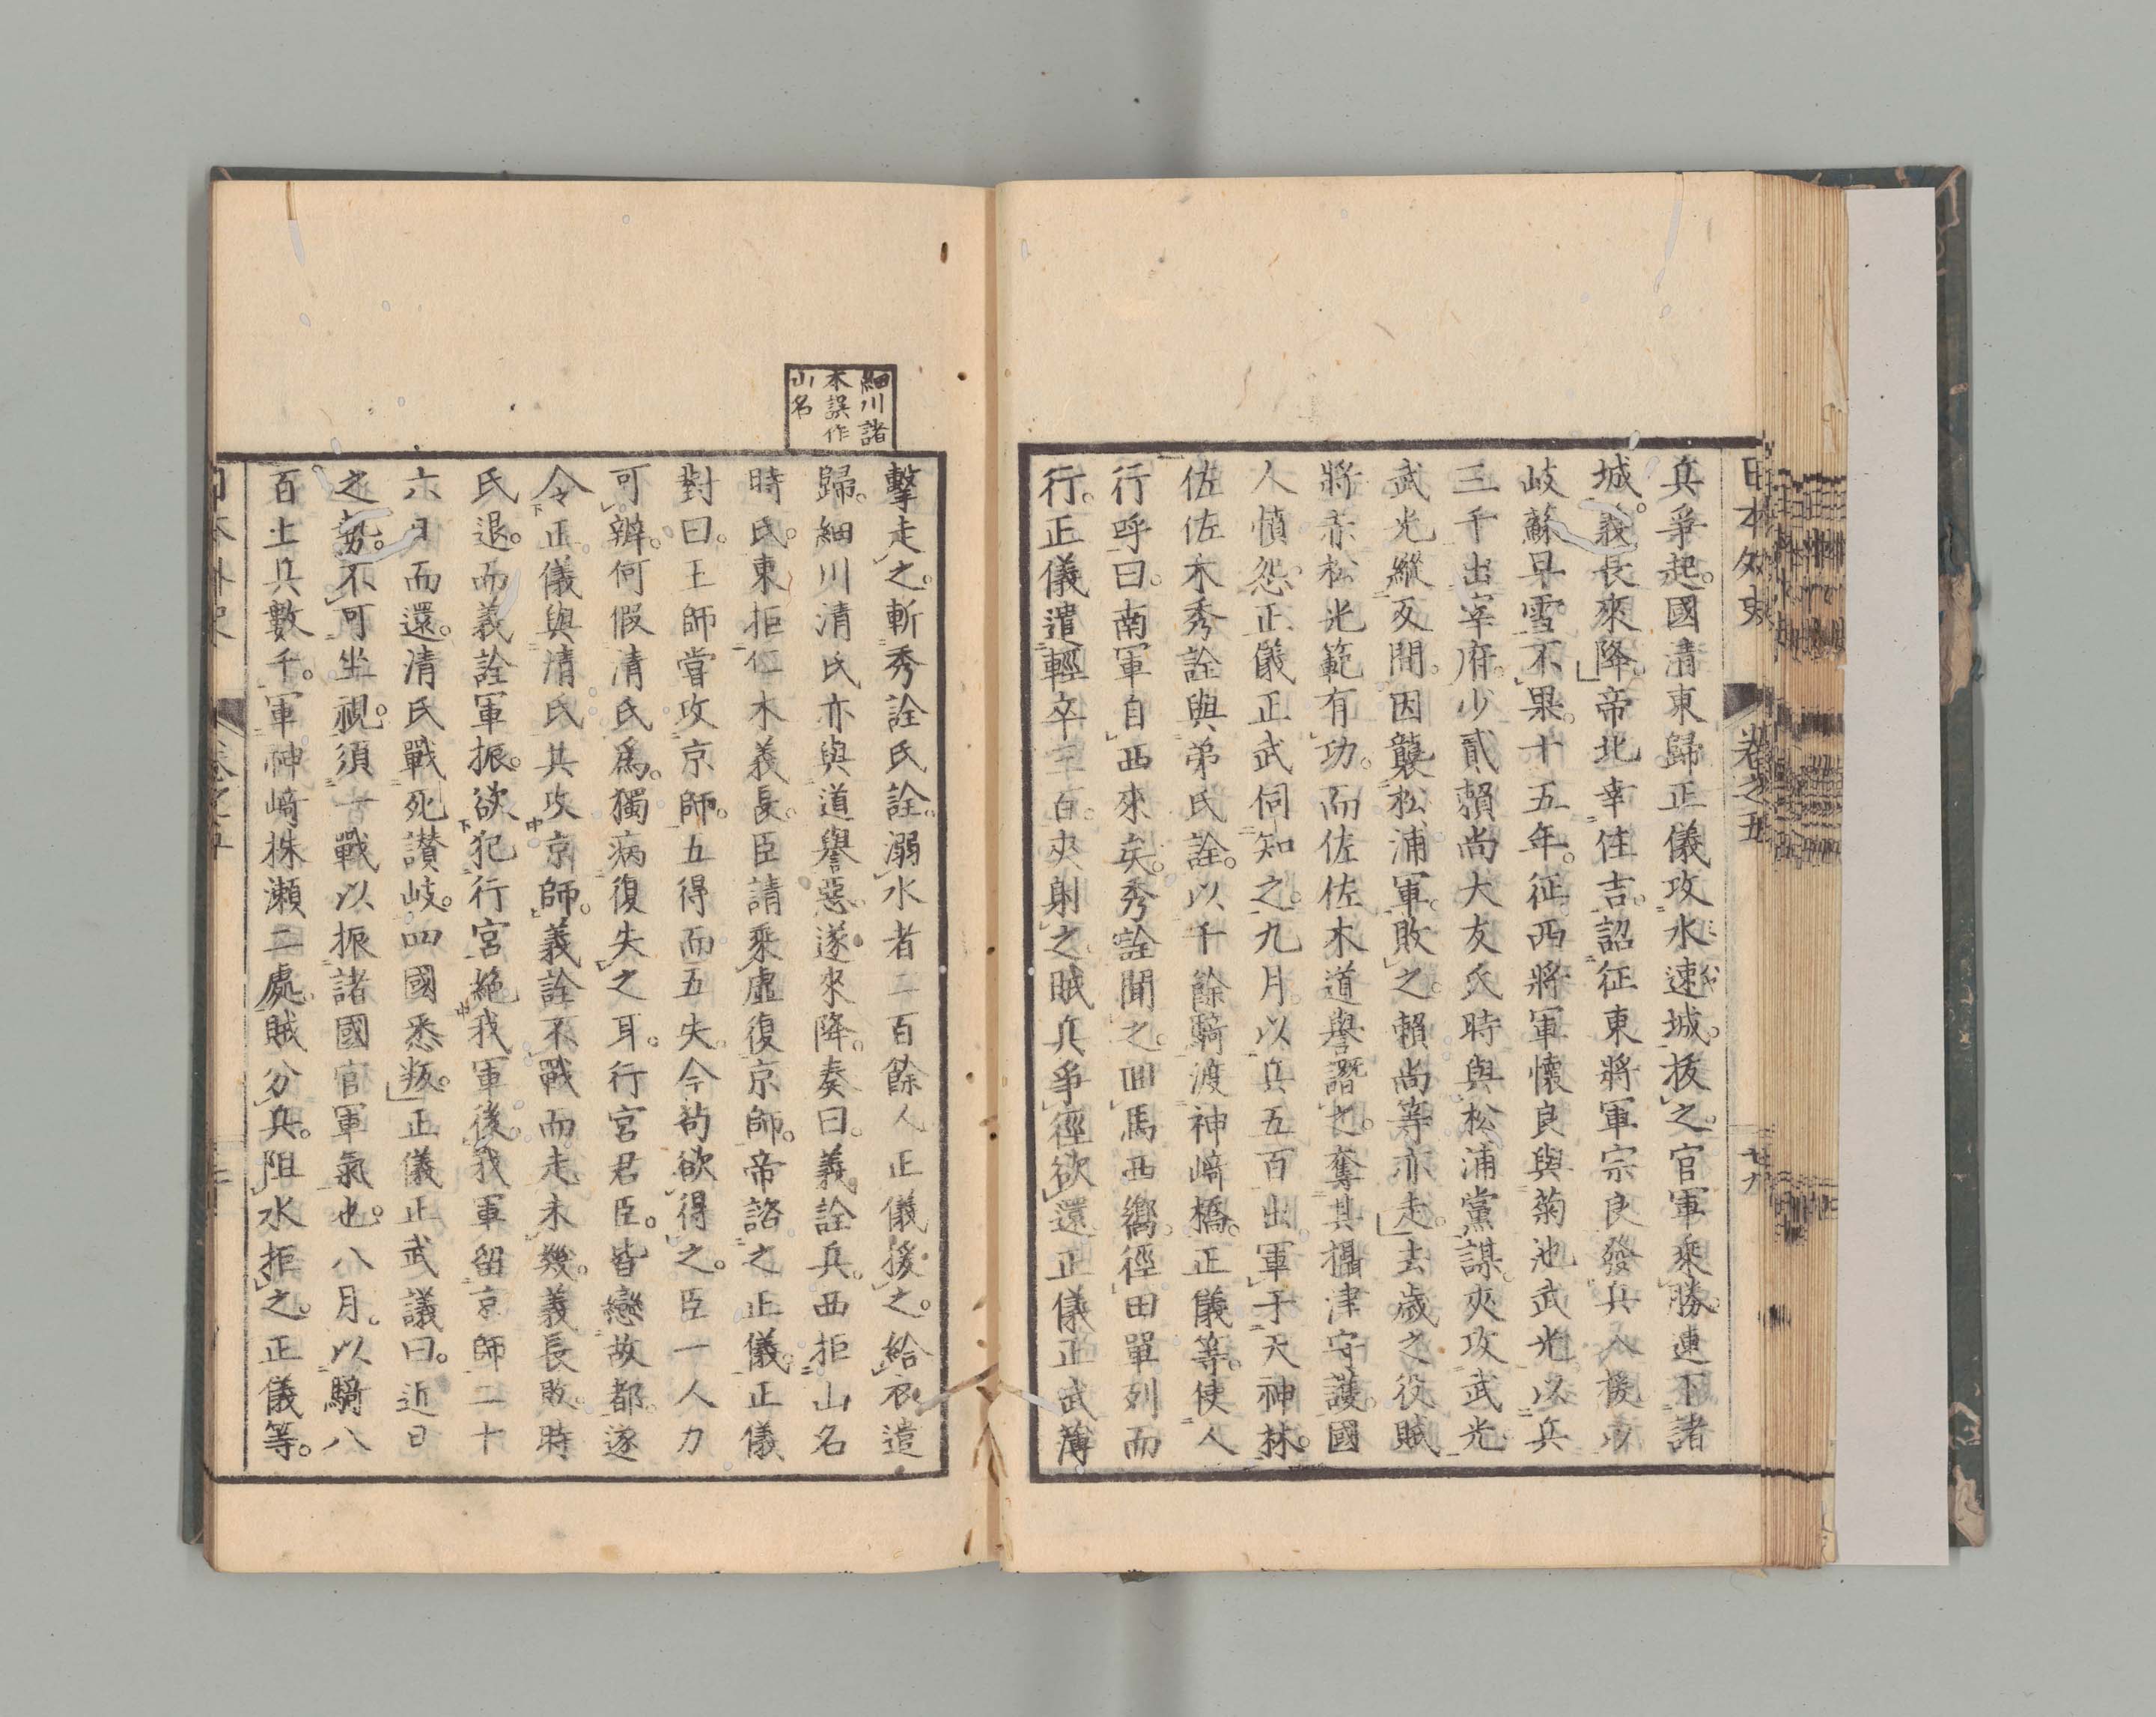 日本外史
卷之五
廿九
兵爭起。國清東歸正儀攻水速城。拔之。官軍乘勝。連下諸
城。義長來降。帝北幸住吉。詔征東將軍宗良發兵入援
岐蘇早雪不果。十五年。征西將軍懷良與菊池武光以兵
三千出宰府。少貳賴尚大友氏時與松浦黨謀。夾攻武光。
武光縱反間。因襲松浦軍。敗之。賴尚等亦走。去歲之役賊
將赤松光範有功。而佐佐木道譽譖之。奪其攝津守護。國
人憤怨。正儀正武伺知之。九月。以兵五百出。軍于天神林。
佐佐木秀詮與弟氏詮。以千餘騎渡神﨑橋。正儀等。使人
行呼曰。南軍自西來矣。秀詮聞之。回馬西嚮。徑田單列而
行。正儀遣輕卒三百夾射之。賊兵爭徑欲還。正儀正武薄
細川諸
本誤作
山名
擊走之。斬秀詮氏詮。溺水者二百餘人正儀援之。給衣遣
歸。細川清氏亦與道譽惡。遂來降。奏曰。義詮兵。西拒山名
時氏。東拒仁木義長。臣請乘虛復京師。帝諮之正儀。正儀
對曰。王師嘗攻京師。五得而五失。今苟欲得之。臣一人力
可辨。何假清氏爲。獨病復失之耳。行宮君臣。皆戀故都。遂
令正儀與清氏共攻京師。義詮不戰而走。未幾。義長敗。時
氏退。而義詮軍振。欲犯行宮絕我軍後。我軍留京師二十
六日而還。清氏戰死讃岐。四國悉叛。正儀正武議曰。近日
之勢。不可坐視。須一戰以振諸國官軍氣也。八月。以騎八
百士兵數千。軍神﨑株瀬二處。賊分兵。阻水拒之。正儀等。